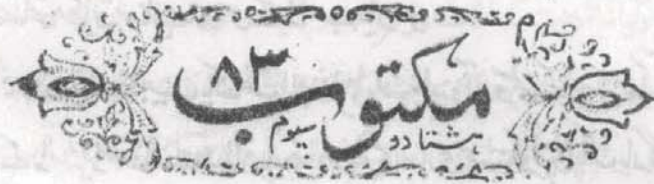 مکتوب ۸۳
هشتاد و سیوم